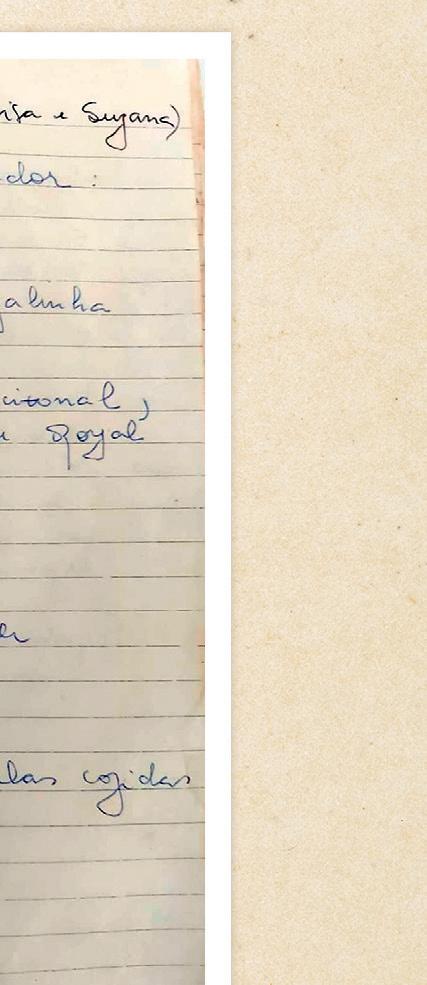 e Suzana)
dor :
galinha
cional,
Royal
las cozidas